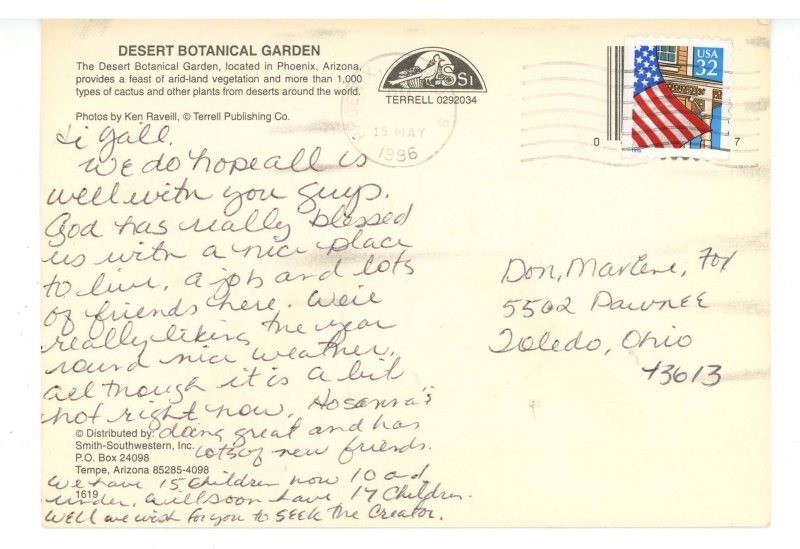 DESERT BOTANICAL GARDEN
The Desert Botanical Garden, located in Phoenix, Arizona,
provides a feast of arid-land vegetation and more than 1,000
types of cactus and other plants from deserts around the world.
Photos by Ken Raveill, © Terrell Publishing Co.
S1
TERRELL 0292034
15 MAY
1996
USA
32
0 7
Hi Yall.
We do hope all is
well with you guys.
God has really blessed
us with a nice place
to live, a job and lots
of friends here. We're
really liking the year
round nice weather,
all though it is a bit
hot right now. Hosanna's
doing great and has
lots of new friends.
We have 15 children now 10 and
under, will soon have 17 children.
Well we wish for you to SEEK the Creator.
Don, Marlene, Fox
5502 Pawnee
Toledo, Ohio
43613
© Distributed by:
Smith-Southwestern, Inc.
P.O. Box 24098
Tempe, Arizona 85285-4098
1619